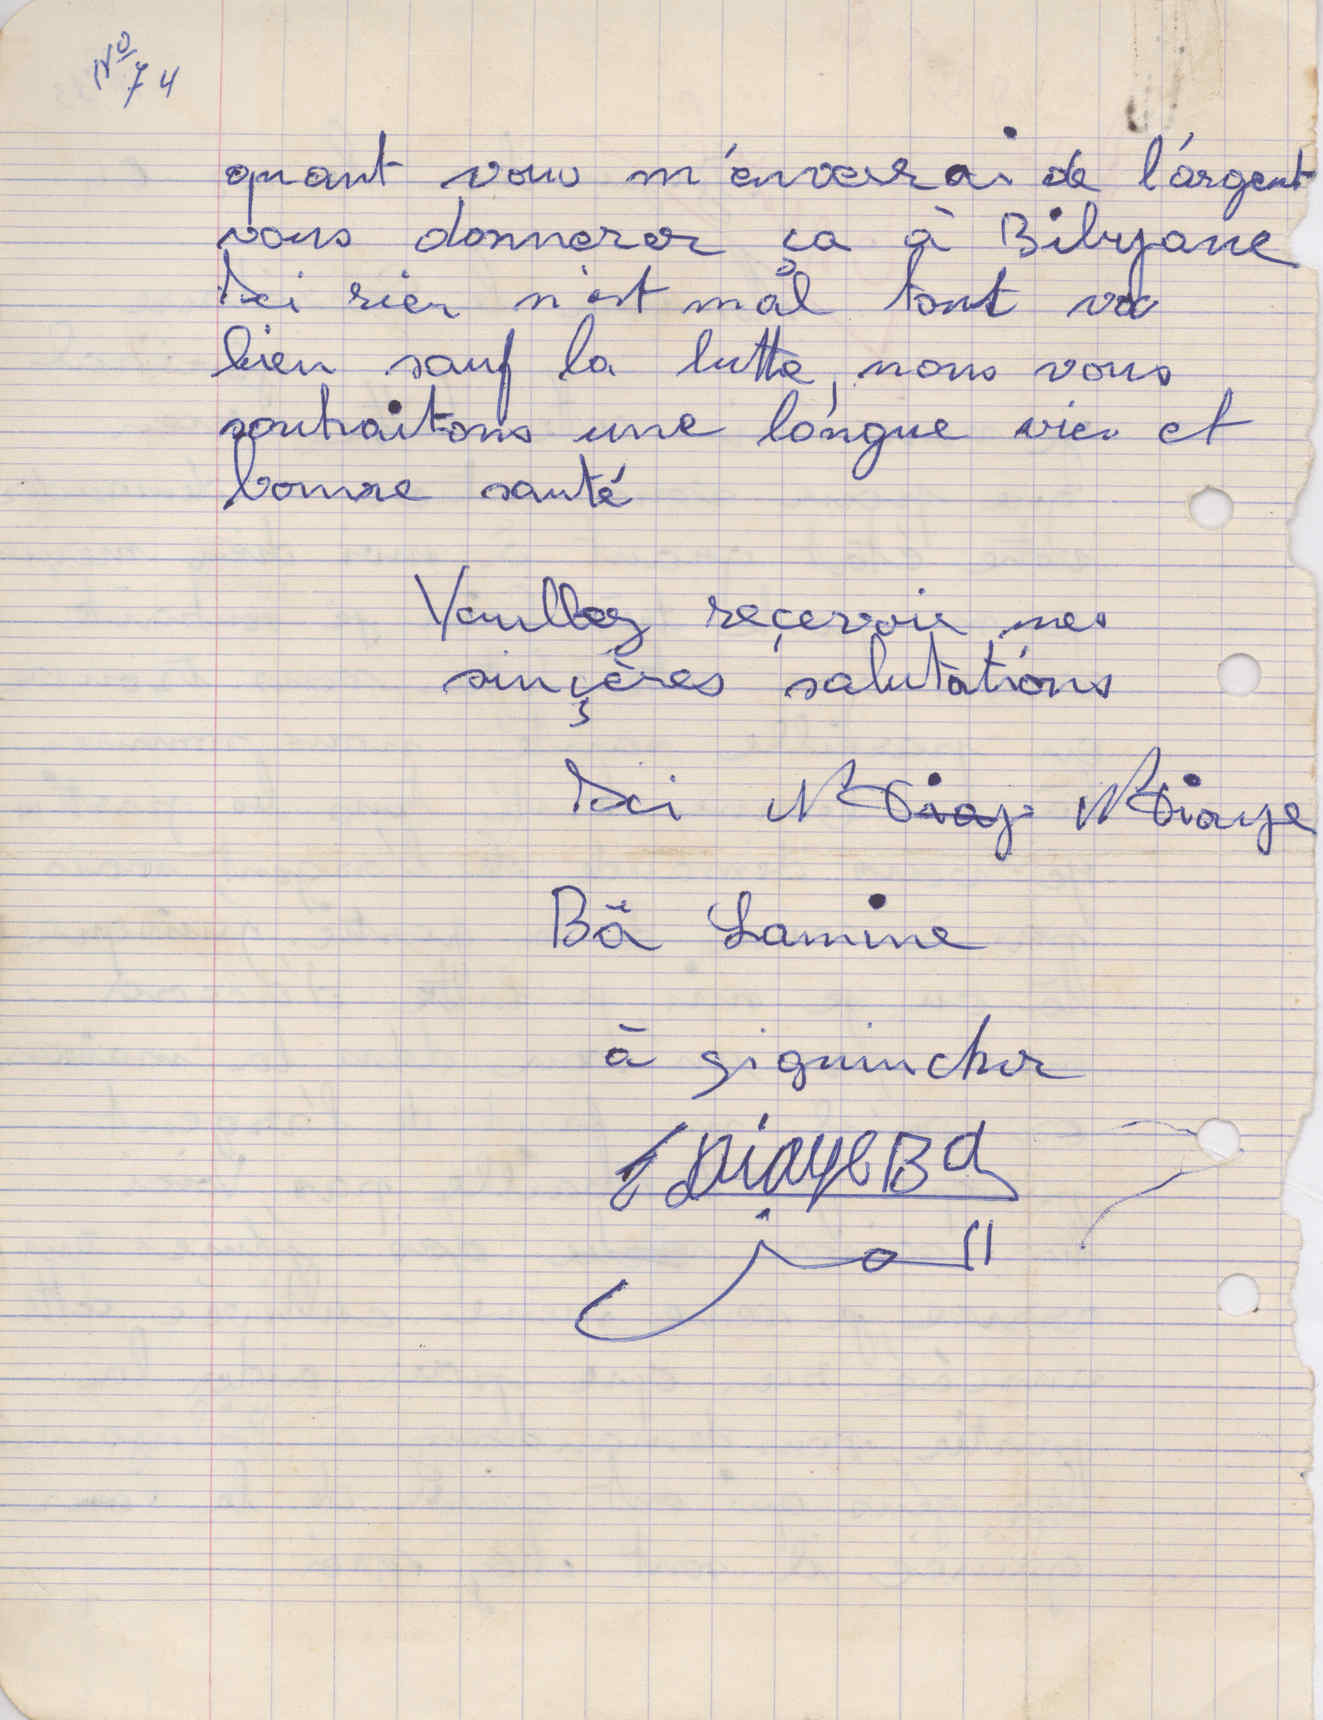 N° 74
quant vous m'enverai de l'argent
vous donnerer ça à Bibyane
Ici rien n'est mal tout va
bien sauf la lutte, nous vous
souhaitons une longue vie et
bonne santé
Vaullez reçevoir mes
sinçères salutations
Ici Ndiay Ndiaye
Bâ Lamine
à Siguinchor
NDIAYE Ba